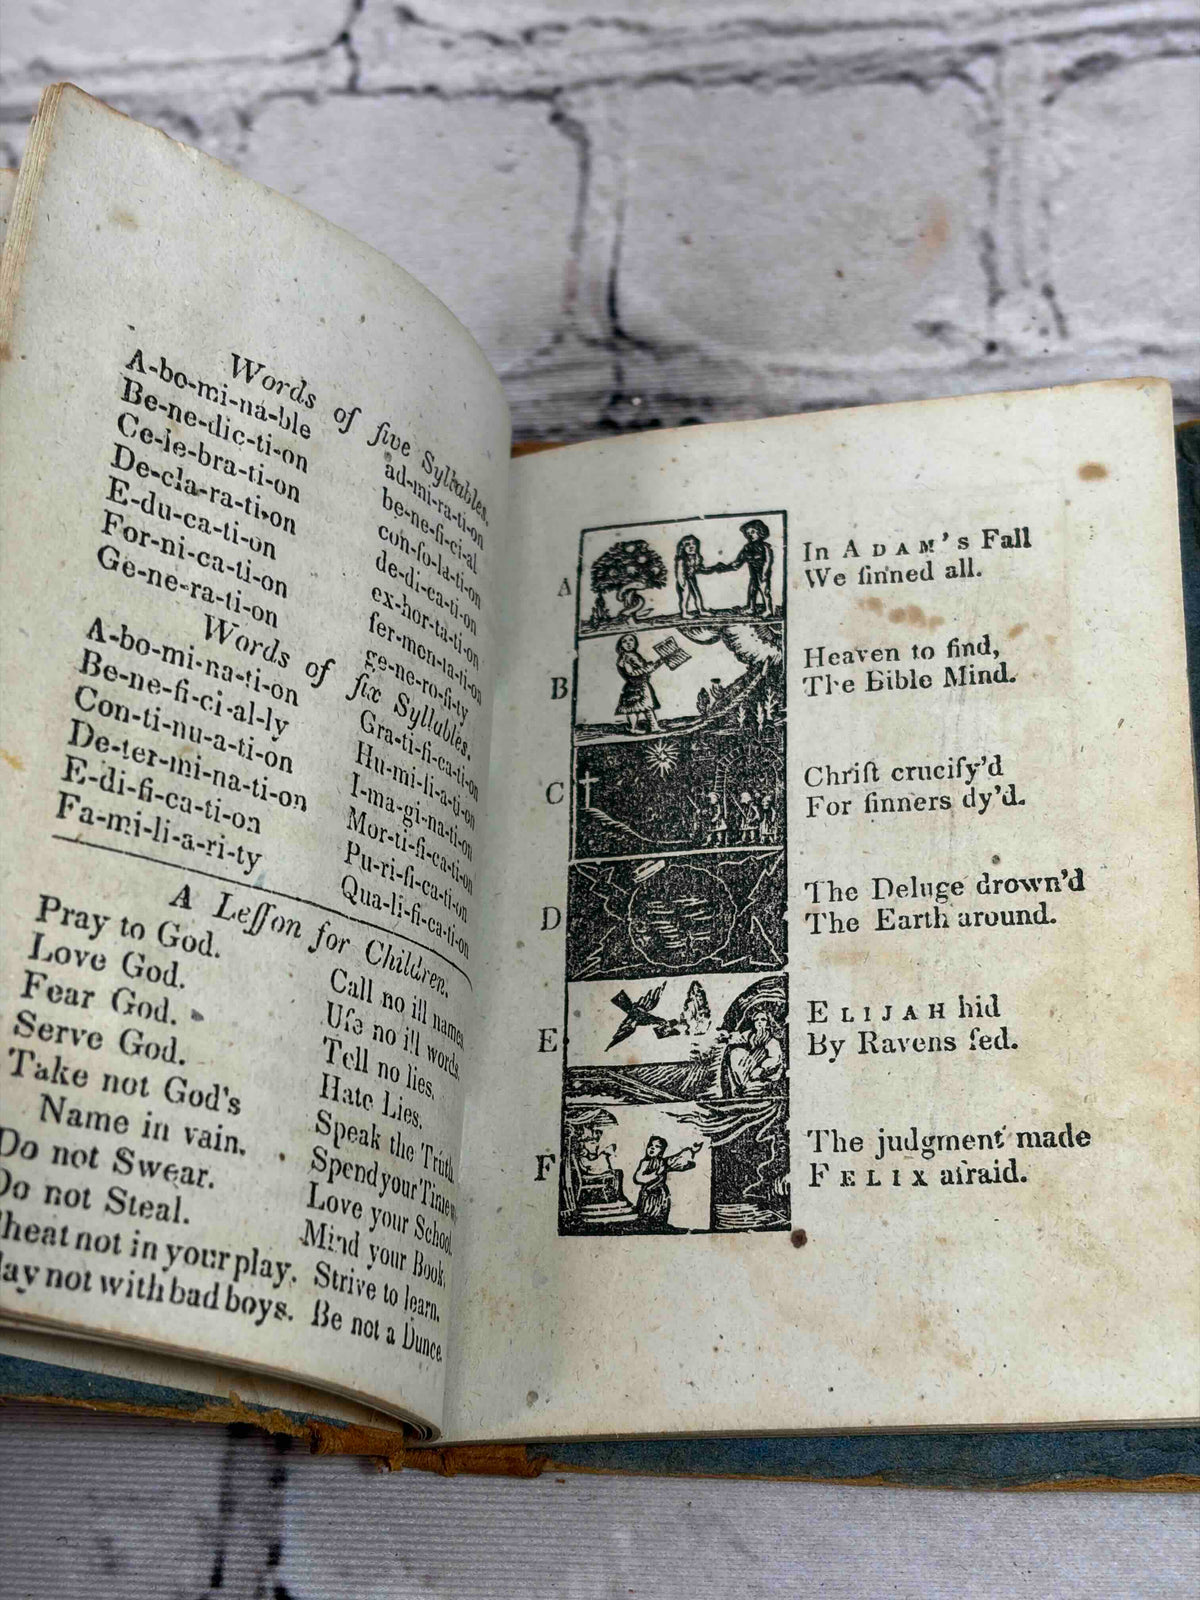 Words of five Syllables.
A-bo-mi-na-ble ad-mi-ra-ti-on
Be-ne-dic-ti-on be-ne-fi-ci-al
Ce-le-bra-ti-on con-ſo-la-ti-on
De-cla-ra-ti-on de-di-ca-ti-on
E-du-ca-ti-on ex-hor-ta-ti-on
For-ni-ca-ti-on fer-men-ta-ti-on
Ge-ne-ra-ti-on ge-ne-ro-ſi-ty
Words of ſix Syllables.
A-bo-mi-na-ti-on Gra-ti-fi-ca-ti-on
Be-ne-fi-ci-al-ly Hu-mi-li-a-ti-on
Con-ti-nu-a-ti-on I-ma-gi-na-ti-on
De-ter-mi-na-ti-on Mor-ti-fi-ca-ti-on
E-di-fi-ca-ti-on Pu-ri-fi-ca-ti-on
Fa-mi-li-a-ri-ty Qua-li-fi-ca-ti-on
A Leſſon for Children.
Pray to God. Call no ill names.
Love God. Uſe no ill words.
Fear God. Tell no lies.
Serve God. Hate Lies.
Take not God's Speak the Truth.
Name in vain. Spend your Time
Do not Swear. Love your School.
Do not Steal. Mind your Book.
Cheat not in your play. Strive to learn.
Play not with bad boys. Be not a Dunce.
A In ADAM's Fall
We ſinned all.
B Heaven to find,
The Bible Mind.
C Chriſt crucify'd
For ſinners dy'd.
D The Deluge drown'd
The Earth around.
E ELIJAH hid
By Ravens fed.
F The judgment made
FELIX afraid.